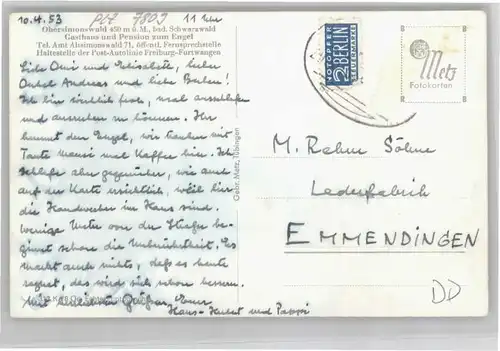 10.4.53 PLZ 7809 11 Uhr
Obersimonswald 450 m ü. M., bad. Schwarzwald
Gasthaus und Pension zum Engel
Tel. Amt Altsimonswald 71, öffentl. Fernsprechstelle
Haltestelle der Post-Autolinie Freiburg-Furtwangen
Liebe Omi und Elisabeth, lieber
Onkel Andreas und liebe Buben!
Ich bin wirklich froh, mal ausschlafen
und ausruhen zu können. Ihr
kennt den Engel, wir tranken mit
Tante mal Kaffee hier. Ich
schlafe aber gegenüber, wie auch
auf der Karte ersichtlich, weil hier
die Handwerker im Haus sind.
Wenige Meter von der Straße be-
ginnt schon die Unberührtheit. Es
macht auch nichts, daß es heute
regnet, das wird sich schon bessern.
Mit herzlichen Grüßen Euer
Hans-Hubert und Pappi
Gebr. Metz, Tübingen
NOTOPFER
2 BERLIN
STEUERMARKE
Metz
Fotokarten
M. Rehm Söhne
Lederfabrik
EMMENDINGEN
DD